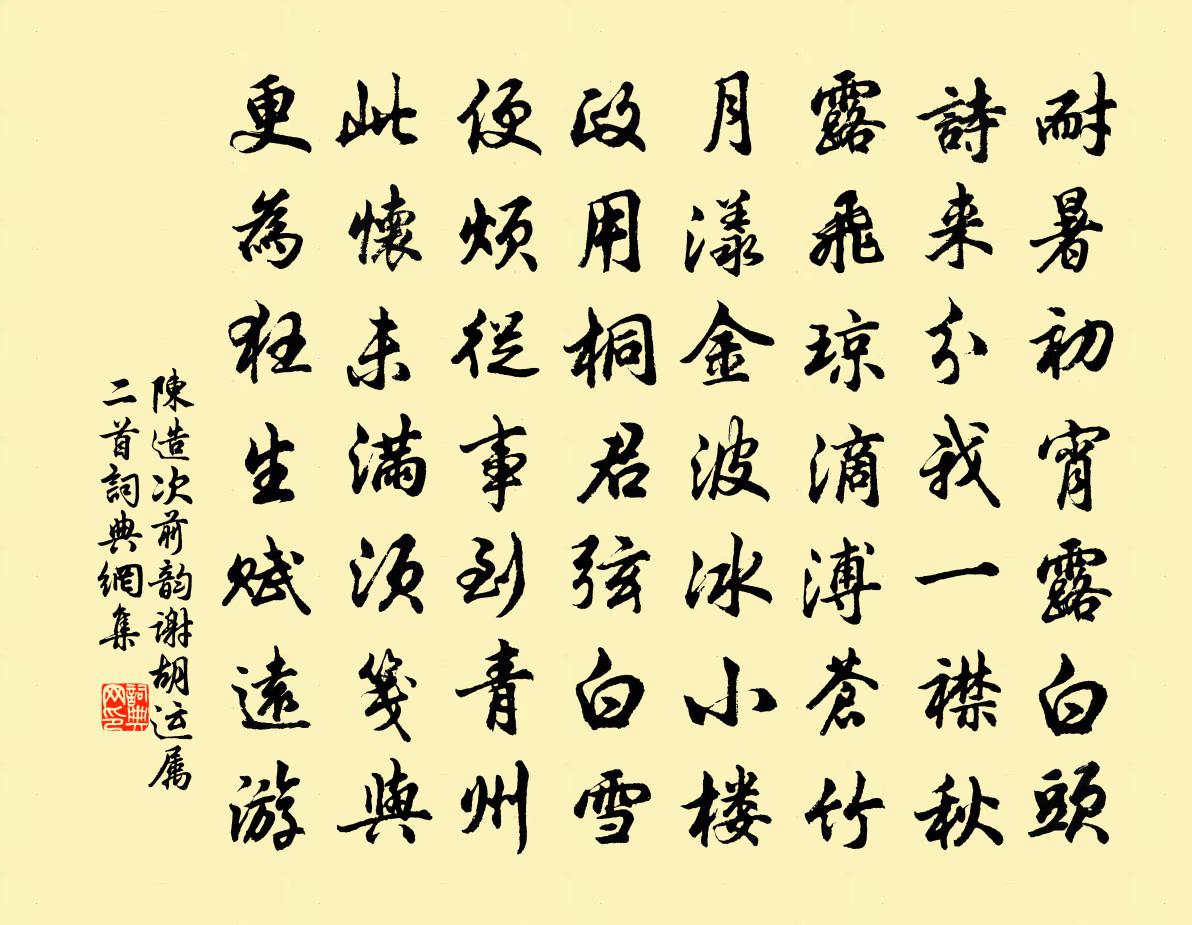 耐暑初宵露白頭
詩来分我一襟秋
露飛琼滴漙蒼竹
月漾金波冰小楼
政用桐君弦白雪
便煩從事到青州
此懷未滿須箋與
更為狂生賦遠游
陳造次前韵謝胡运属
二首詞典網集
詞典网印